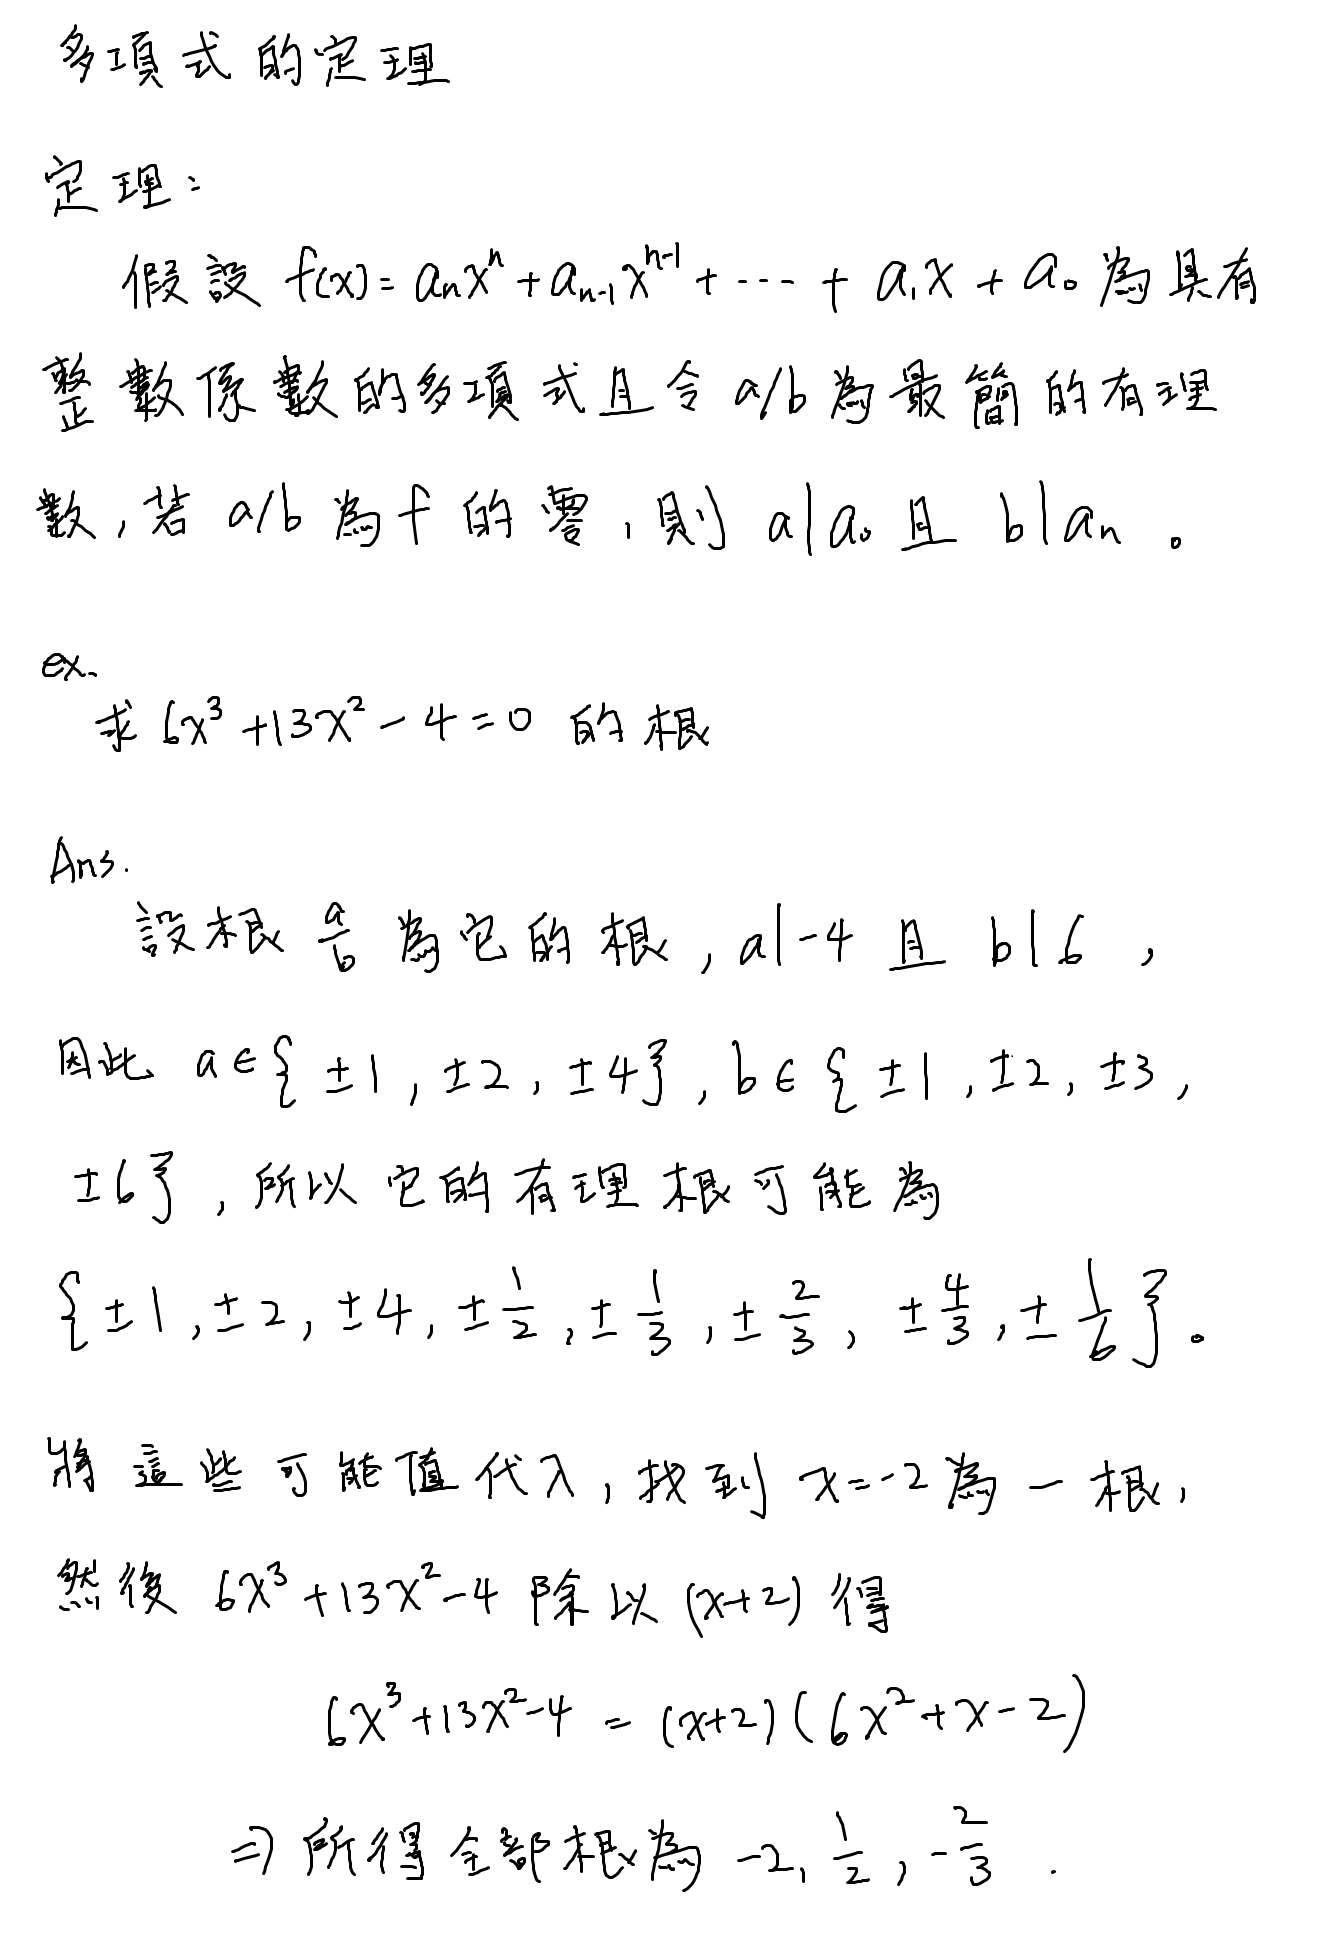 多項式的定理
定理：
假設 f(x) = aₙxⁿ + aₙ₋₁xⁿ⁻¹ + ⋯ + a₁x + a₀ 為具有
整數係數的多項式且令 a/b 為最簡的有理
數, 若 a/b 為 f 的零, 則 a|a₀ 且 b|aₙ 。
ex.
求 6x³ + 13x² - 4 = 0 的根
Ans.
設根 a/b 為它的根, a|-4 且 b|6 ,
因此 a ∈ { ±1, ±2, ±4 }, b ∈ { ±1, ±2, ±3,
±6 }, 所以它的有理根可能為
{ ±1, ±2, ±4, ±1/2, ±1/3, ±2/3, ±4/3, ±1/6 }。
將這些可能值代入, 找到 x = -2 為一根,
然後 6x³ + 13x² - 4 除以 (x+2) 得
6x³ + 13x² - 4 = (x+2)(6x² + x - 2)
⇒ 所得全部根為 -2, 1/2, -2/3 .